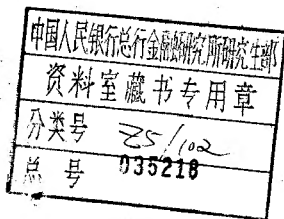 中国人民银行总行金融研究所研究生部
资料室藏书专用章
分类号 Z5/102
总号 035218